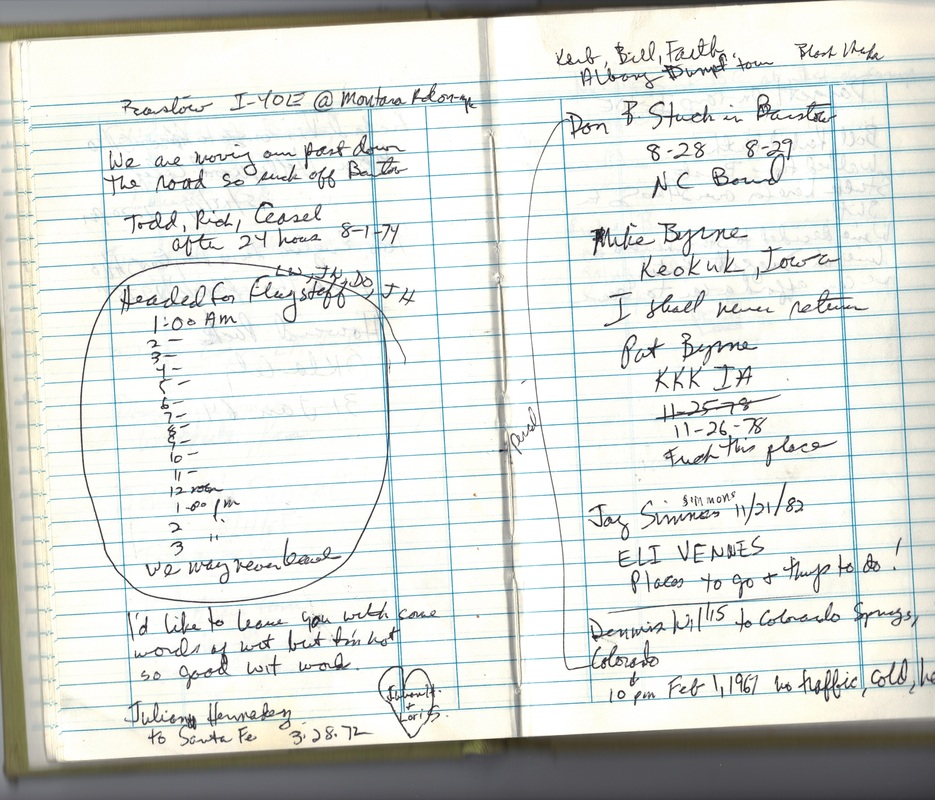 Barstow I-40E @ Montara Rd on-
We are moving our past down
the road so suck off Barstow
Todd, Rich, Ceasel
after 24 hours 8-1-74
LW, JK, DO, JH
Headed for Flagstaff
1:00 AM
2 –
3 –
4 –
5 –
6 –
7 –
8 –
9 –
10 –
11 –
12 noon
1:00 pm
2 "
3 "
we may never leave
I'd like to leave you with some
words of wit but I'm not
so good wit words.
+
Lori S.
Julian Hennessy
to Santa Fe 3.28.72
Bill, Faith,
Albany tour
Don B Stuck in Barstow
8-28 8-29
NC Bound
Mike Byrne
Keokuk, Iowa
I shall never return
Pat Byrne
KKK IA
11-25-78
11-26-78
Fuck this place
Simmons
Jay Simmons 11/21/82
ELI VENNES
Places to go + things to do!
Dennis Willis to Colorado Springs,
Colorado
10 pm Feb 1, 1967 no traffic, cold,